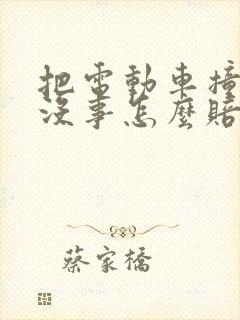 把電動車撞
沒事怎麼賠
蔡家橋